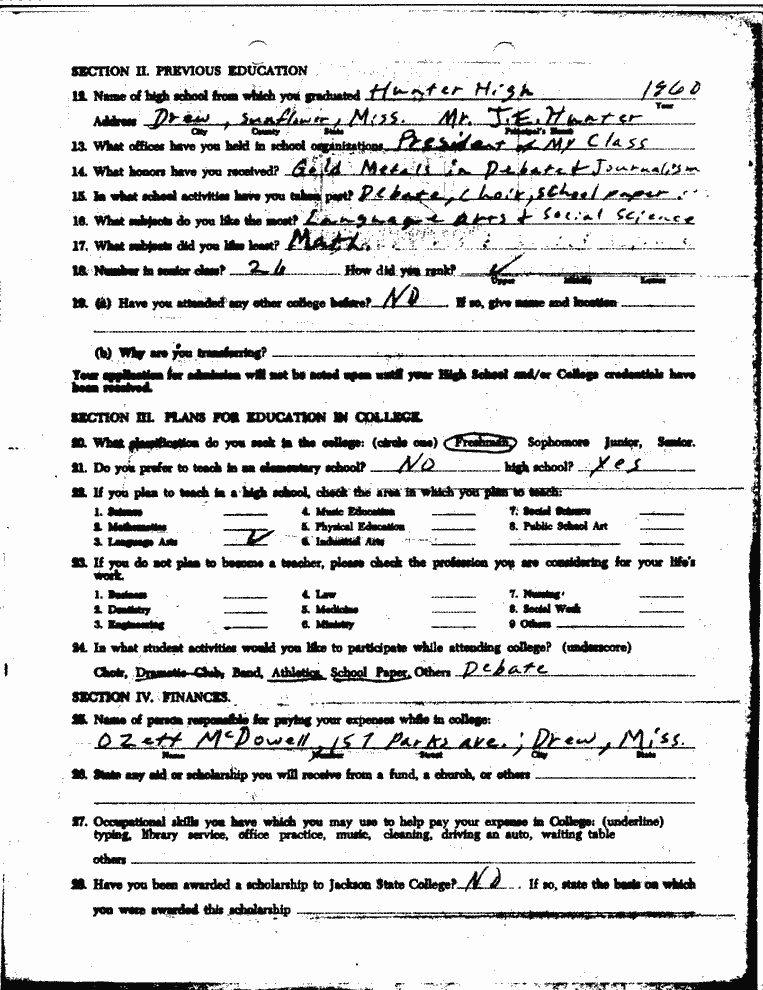 SECTION II. PREVIOUS EDUCATION
12. Name of high school from which you graduated Hunter High 1960
Year
Address Drew, Sunflower, Miss. Mr. J.E. Hunter
City County State Principal's Name
13. What offices have you held in school organizations President of My Class
14. What honors have you received? Gold Metals in Debate & Journalism
15. In what school activities have you taken part? Debate, Choir, School paper
16. What subjects do you like the most? Language Arts & Social Science
17. What subjects did you like least? Math.
18. Number in senior class? 26 How did you rank? ✓
Upper Middle Lower
19. (a) Have you attended any other college before? NO If so, give name and location
(b) Why are you transferring?
Your application for admission will not be acted upon until your High School and/or College credentials have
been received.
SECTION III. PLANS FOR EDUCATION IN COLLEGE.
20. What classification do you seek in the college: (circle one) Freshman, Sophomore Junior, Senior.
21. Do you prefer to teach in an elementary school? NO high school? Yes
22. If you plan to teach in a high school, check the area in which you plan to teach:
1. Science 4. Music Education 7. Social Science
2. Mathematics 5. Physical Education 8. Public School Art
3. Language Arts ✓ 6. Industrial Arts
23. If you do not plan to become a teacher, please check the profession you are considering for your life's
work.
1. Business 4. Law 7. Nursing
2. Dentistry 5. Medicine 8. Social Work
3. Engineering 6. Ministry 9 Others
24. In what student activities would you like to participate while attending college? (underscore)
Choir, Dramatic Club, Band, Athletics, School Paper, Others Debate
SECTION IV. FINANCES.
25. Name of person responsible for paying your expenses while in college:
Ozett McDowell, 157 Parks ave.; Drew, Miss.
Name Number Street City State
26. State any aid or scholarship you will receive from a fund, a church, or others
27. Occupational skills you have which you may use to help pay your expense in College: (underline)
typing, library service, office practice, music, cleaning, driving an auto, waiting table
others
28. Have you been awarded a scholarship to Jackson State College? NO. If so, state the basis on which
you were awarded this scholarship